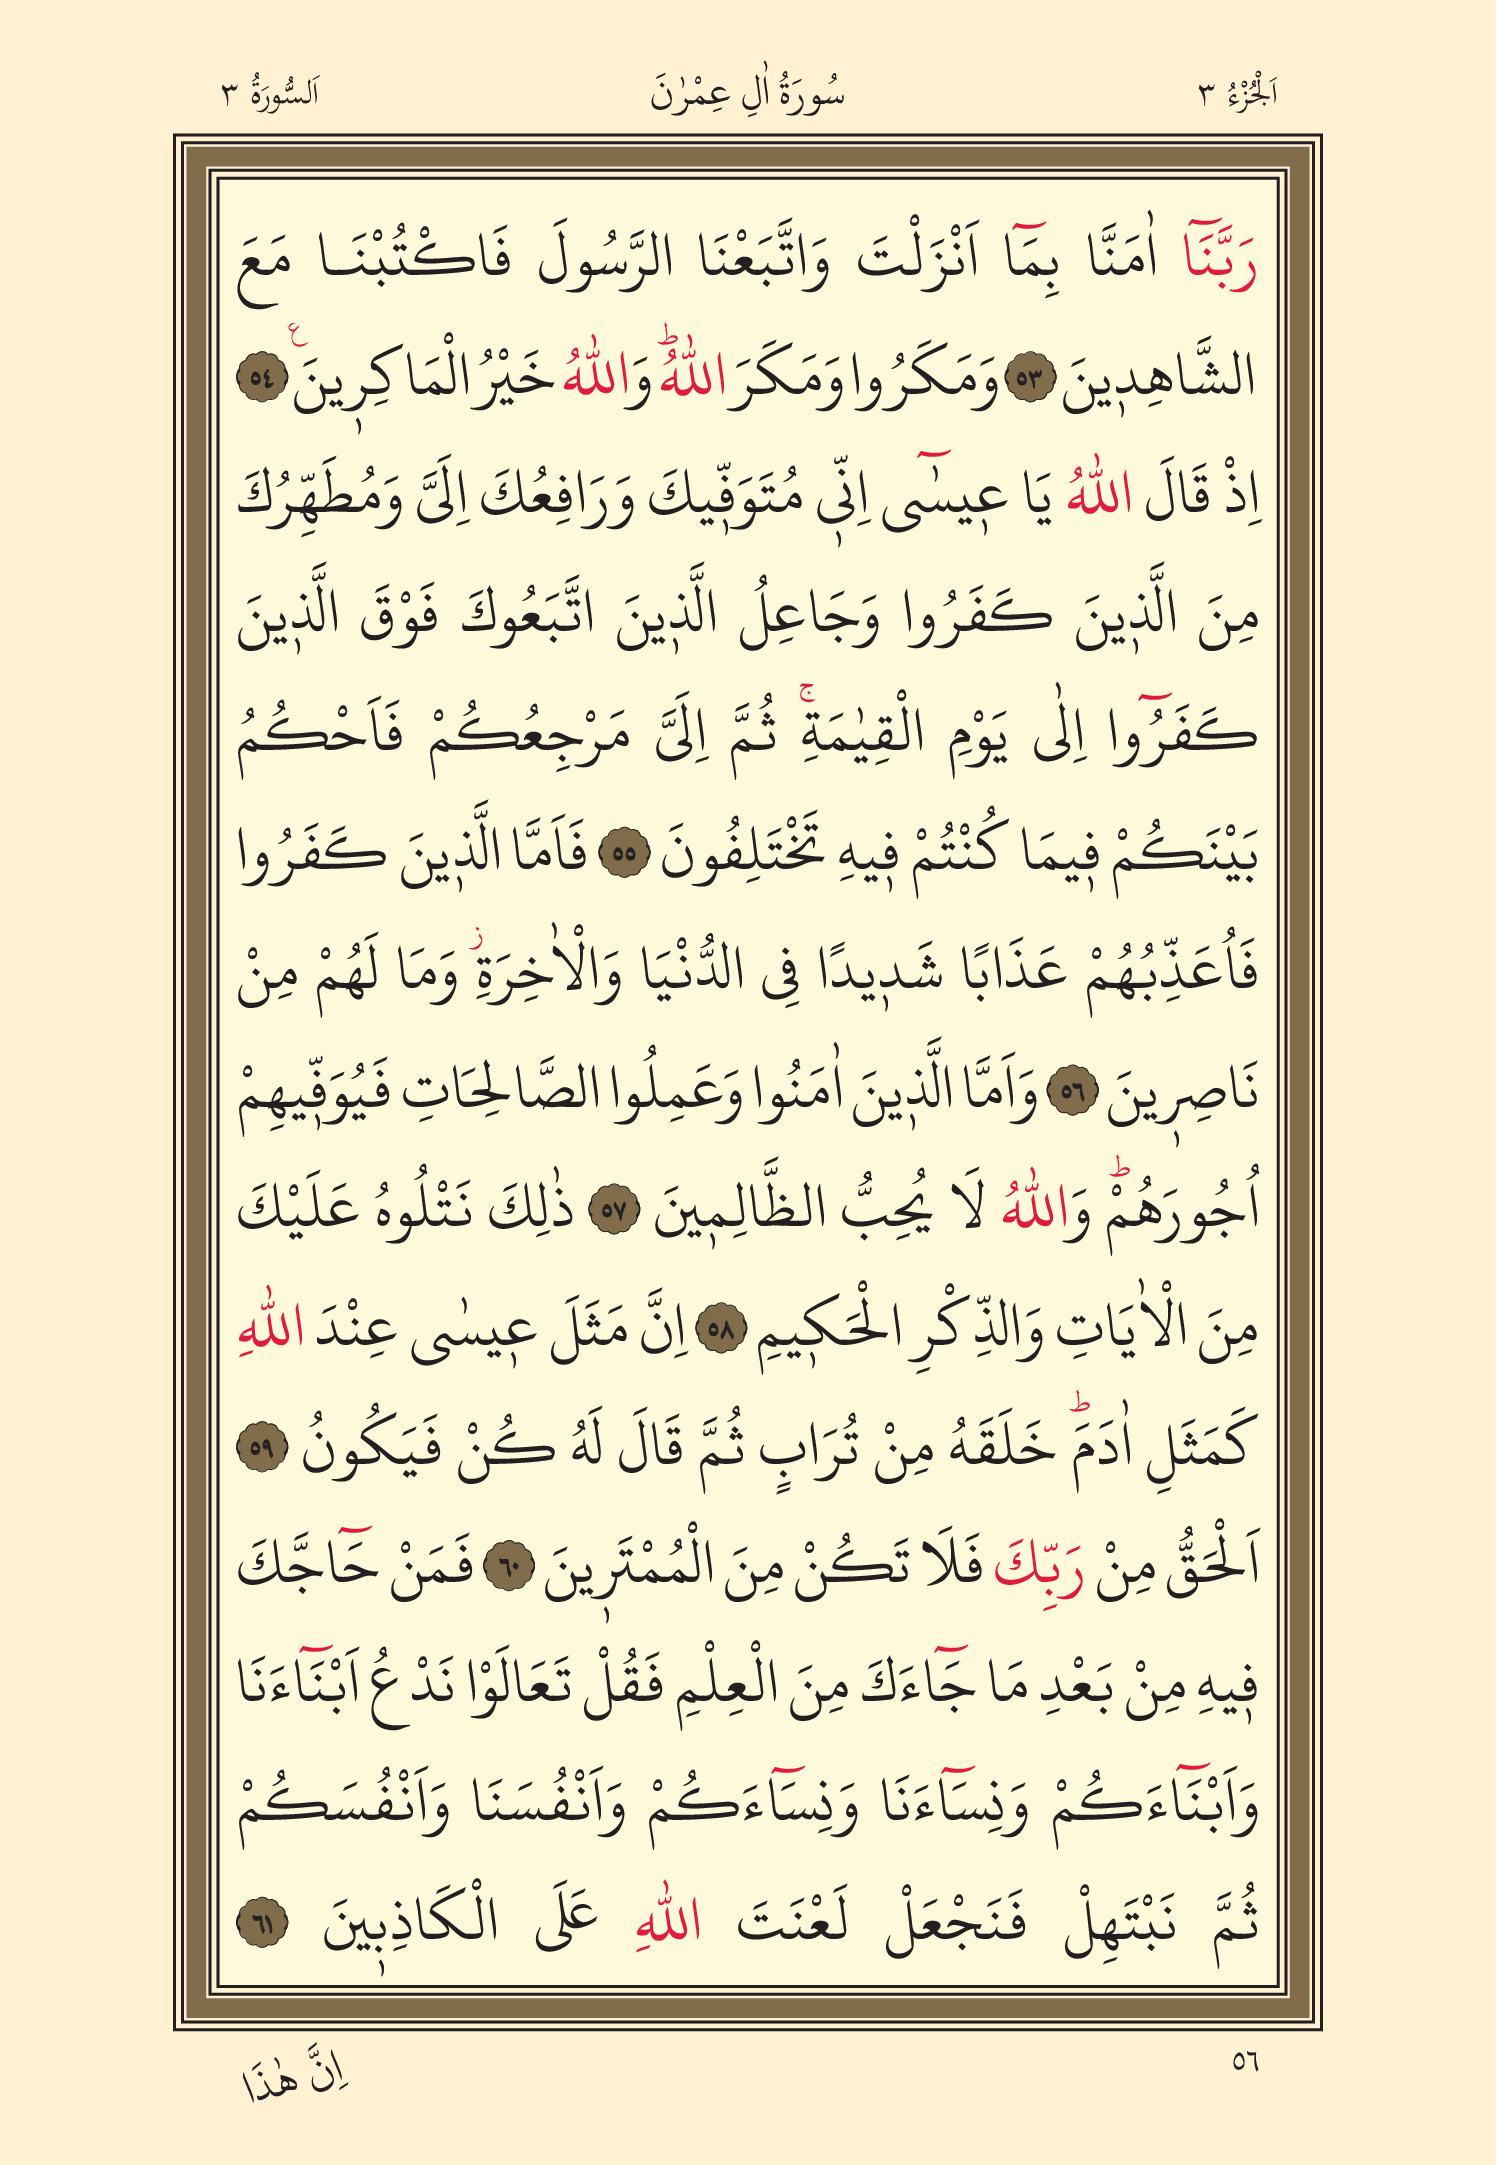 اَلْجُزْءُ ٣ سُورَةُ اٰلِ عِمْرٰنَ اَلسُّورَةُ ٣
رَبَّنَٓا اٰمَنَّا بِمَٓا اَنْزَلْتَ وَاتَّبَعْنَا الرَّسُولَ فَاكْتُبْنَا مَعَ
الشَّاهِد۪ينَ ٥٣ وَمَكَرُوا وَمَكَرَ اللّٰهُۜ وَاللّٰهُ خَيْرُ الْمَاكِر۪ينَ۟ ٥٤
اِذْ قَالَ اللّٰهُ يَا ع۪يسٰٓى اِنّ۪ي مُتَوَفّ۪يكَ وَرَافِعُكَ اِلَيَّ وَمُطَهِّرُكَ
مِنَ الَّذ۪ينَ كَفَرُوا وَجَاعِلُ الَّذ۪ينَ اتَّبَعُوكَ فَوْقَ الَّذ۪ينَ
كَفَرُٓوا اِلٰى يَوْمِ الْقِيٰمَةِۚ ثُمَّ اِلَيَّ مَرْجِعُكُمْ فَاَحْكُمُ
بَيْنَكُمْ ف۪يمَا كُنْتُمْ ف۪يهِ تَخْتَلِفُونَ ٥٥ فَاَمَّا الَّذ۪ينَ كَفَرُوا
فَاُعَذِّبُهُمْ عَذَابًا شَد۪يدًا فِي الدُّنْيَا وَالْاٰخِرَةِۘ وَمَا لَهُمْ مِنْ
نَاصِر۪ينَ ٥٦ وَاَمَّا الَّذ۪ينَ اٰمَنُوا وَعَمِلُوا الصَّالِحَاتِ فَيُوَفّ۪يهِمْ
اُجُورَهُمْۜ وَاللّٰهُ لَا يُحِبُّ الظَّالِم۪ينَ ٥٧ ذٰلِكَ نَتْلُوهُ عَلَيْكَ
مِنَ الْاٰيَاتِ وَالذِّكْرِ الْحَك۪يمِ ٥٨ اِنَّ مَثَلَ ع۪يسٰى عِنْدَ اللّٰهِ
كَمَثَلِ اٰدَمَۜ خَلَقَهُ مِنْ تُرَابٍ ثُمَّ قَالَ لَهُ كُنْ فَيَكُونُ ٥٩
اَلْحَقُّ مِنْ رَبِّكَ فَلَا تَكُنْ مِنَ الْمُمْتَر۪ينَ ٦٠ فَمَنْ حَٓاجَّكَ
ف۪يهِ مِنْ بَعْدِ مَا جَٓاءَكَ مِنَ الْعِلْمِ فَقُلْ تَعَالَوْا نَدْعُ اَبْنَٓاءَنَا
وَاَبْنَٓاءَكُمْ وَنِسَٓاءَنَا وَنِسَٓاءَكُمْ وَاَنْفُسَنَا وَاَنْفُسَكُمْ
ثُمَّ نَبْتَهِلْ فَنَجْعَلْ لَعْنَتَ اللّٰهِ عَلَى الْكَاذِب۪ينَ ٦١
٥٦ اِنَّ هٰذَا